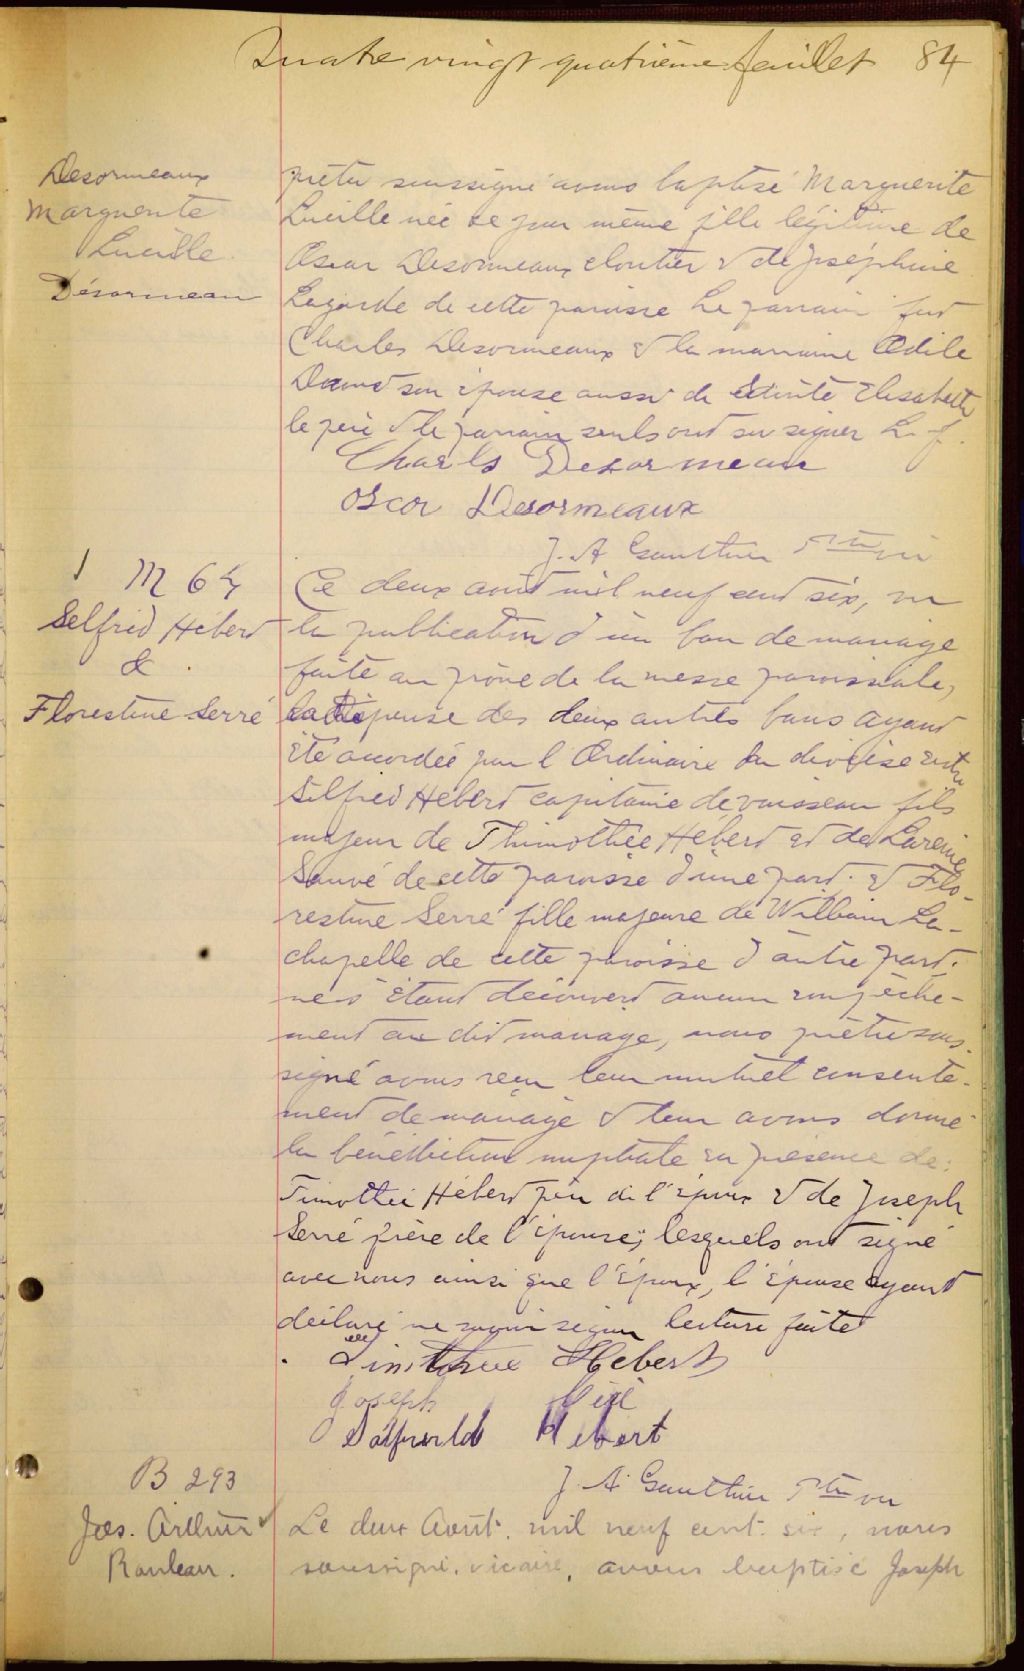 Quatre vingt quatrième feuillet 84
Desormeaux
Marguerite
Lucille
Désormeau
prêtre soussigné avons baptisé Marguerite
Lucille née ce jour même fille légitime de
Oscar Desormeaux cloutier & de Joséphine
Lagarde de cette paroisse Le parrain fut
Charles Desormeaux & la marraine Odile
son épouse aussi de Elisabeth
le père & le parrain seuls ont su signer L. f.
Charls Desormeaux
Oscar Desormeaux
J. A Gauthier Ptre
M 64
Selfrid Hébert
&
Florestine Serré
Ce deux août mil neuf cent six, vu
la publication d'un ban de mariage
faite au prône de la messe paroissiale,
la dispense des deux autres bans ayant
été accordée par l'Ordinaire du diocèse entre
Selfrid Hébert capitaine de vaisseau fils
majeur de Thimothée Hébert et de Lareine
Sauvé de cette paroisse d'une part. & Flo-
restine Serré fille majeure de William La-
chapelle de cette paroisse d'autre part.
ne s'étant découvert aucun empêche-
ment au dit mariage, nous prêtre sous-
signé avons reçu leur mutuel consente-
ment de mariage & leur avons donné
la bénédiction nuptiale en présence de:
Timothée Hébert père de l'époux & de Joseph
Serré frère de l'épouse; lesquels ont signé
avec nous ainsi que l'époux, l'épouse ayant
déclaré ne savoir signer lecture faite
Hebert
Joseph
Hebert
J. A. Gauthier Ptre
B 293
Jos. Arthur
Rouleau.
Le deux Août. mil neuf cent. six, nous
soussigné. vicaire, avons baptisé Joseph